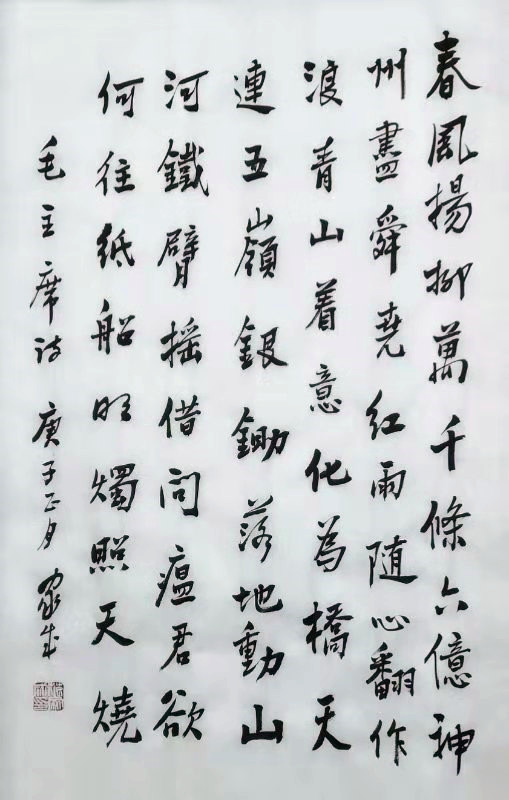 春風揚柳萬千條六億神
州盡舜堯紅雨随心翻作
浪青山着意化為橋天
連五嶺銀鋤落地動山
河鐵臂摇借问瘟君欲
何往紙船明燭照天燒
毛主席诗 庚子正月 家成